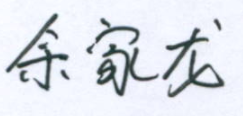 余家龙